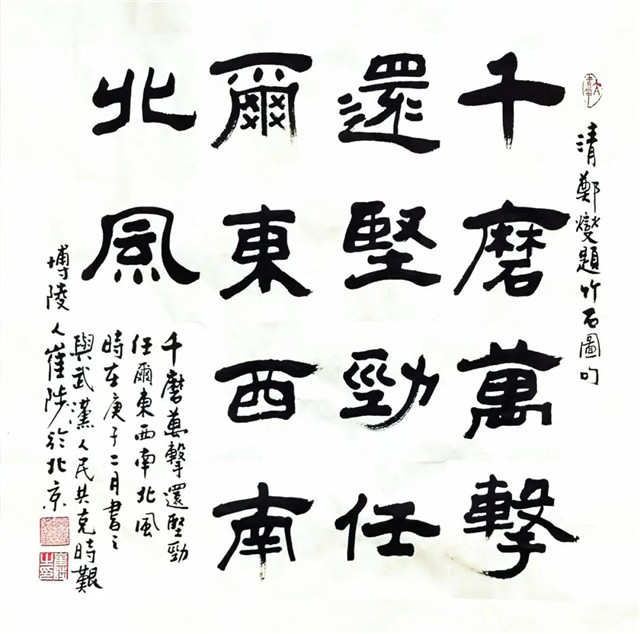 清鄭燮題竹石圖句
千磨萬擊
還堅勁任
爾東西南
北風
千磨萬擊還堅勁
任爾東西南北風
時在庚子二月書之
與武漢人民共克時艱
博陵人崔陟於北京